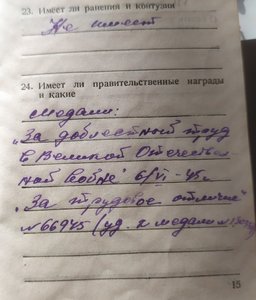 23. Имеет ли ранения и контузии
Не имеет
24. Имеет ли правительственные награды
и какие
медали:
„За доблестный труд
в Великой Отечествен
ной войне" 6/VI-45г
„За трудовое отличие"
№66945 (уд. к медали №
15